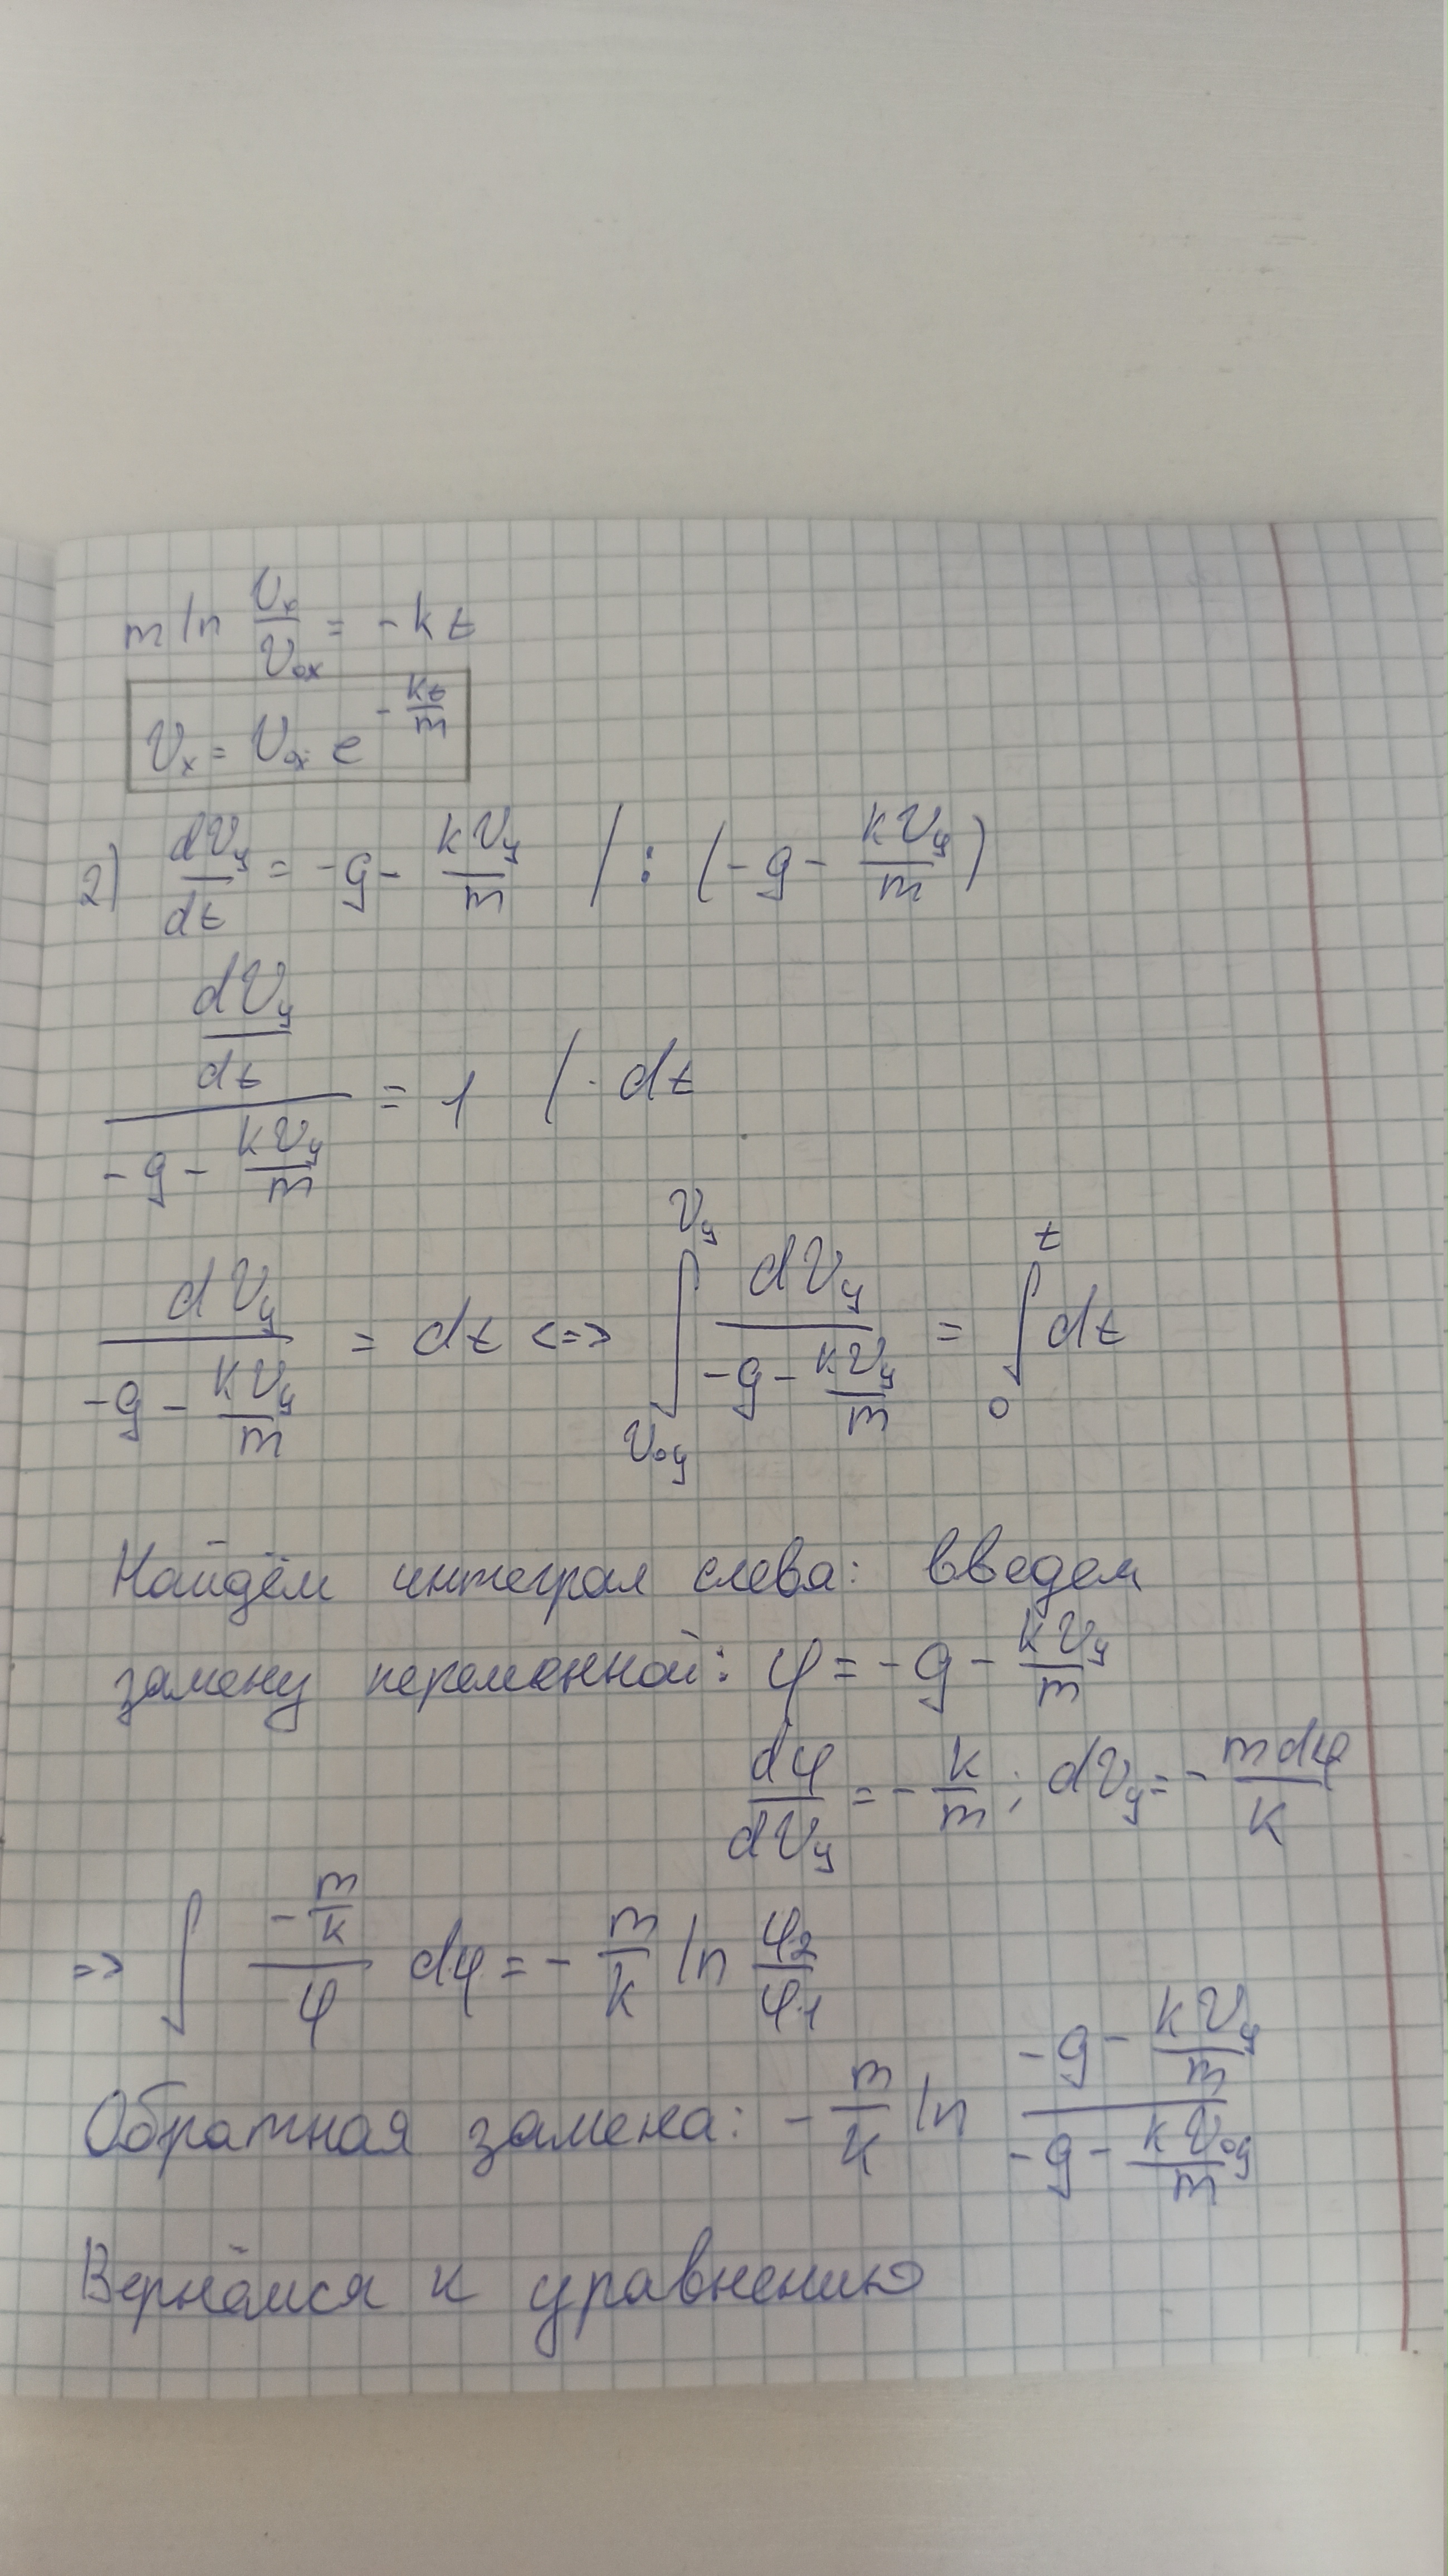 m ln Vx/V0x = -kt
Vx = V0x e^(-kt/m)
2) dVy/dt = -g - kVy/m / : (-g - kVy/m)
(dVy/dt)/(-g - kVy/m) = 1 / · dt
dVy/(-g - kVy/m) = dt <=> ∫_{V0y}^{Vy} dVy/(-g - kVy/m) = ∫_0^t dt
Найдём интеграл слева: введем
замену переменной: φ = -g - kVy/m
dφ/dVy = -k/m ; dVy = - mdφ/k
=> ∫ (-m/k)/φ dφ = - m/k ln φ2/φ1
Обратная замена: - m/k ln (-g - kVy/m)/(-g - kV0y/m)
Вернёмся к уравнению